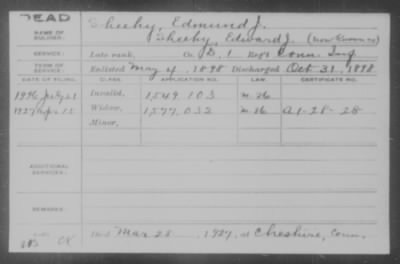 DEAD
NAME OF SOLDIER: Sheehy, Edmund J.
Sheehy, Edward J. (now known as)
SERVICE: Late rank, Co. D, 1 Reg't Conn. Inf.
TERM OF SERVICE: Enlisted May 4, 1898 Discharged Oct 31, 1898
DATE OF FILING. CLASS. APPLICATION NO. LAW. CERTIFICATE NO.
Invalid, 1,549,103
1927 Apr. 15 Widow, 1,577,032 A1-28-28
Minor,
ADDITIONAL SERVICES:
REMARKS:
Died Mar 28, 1927, at Cheshire, Conn.